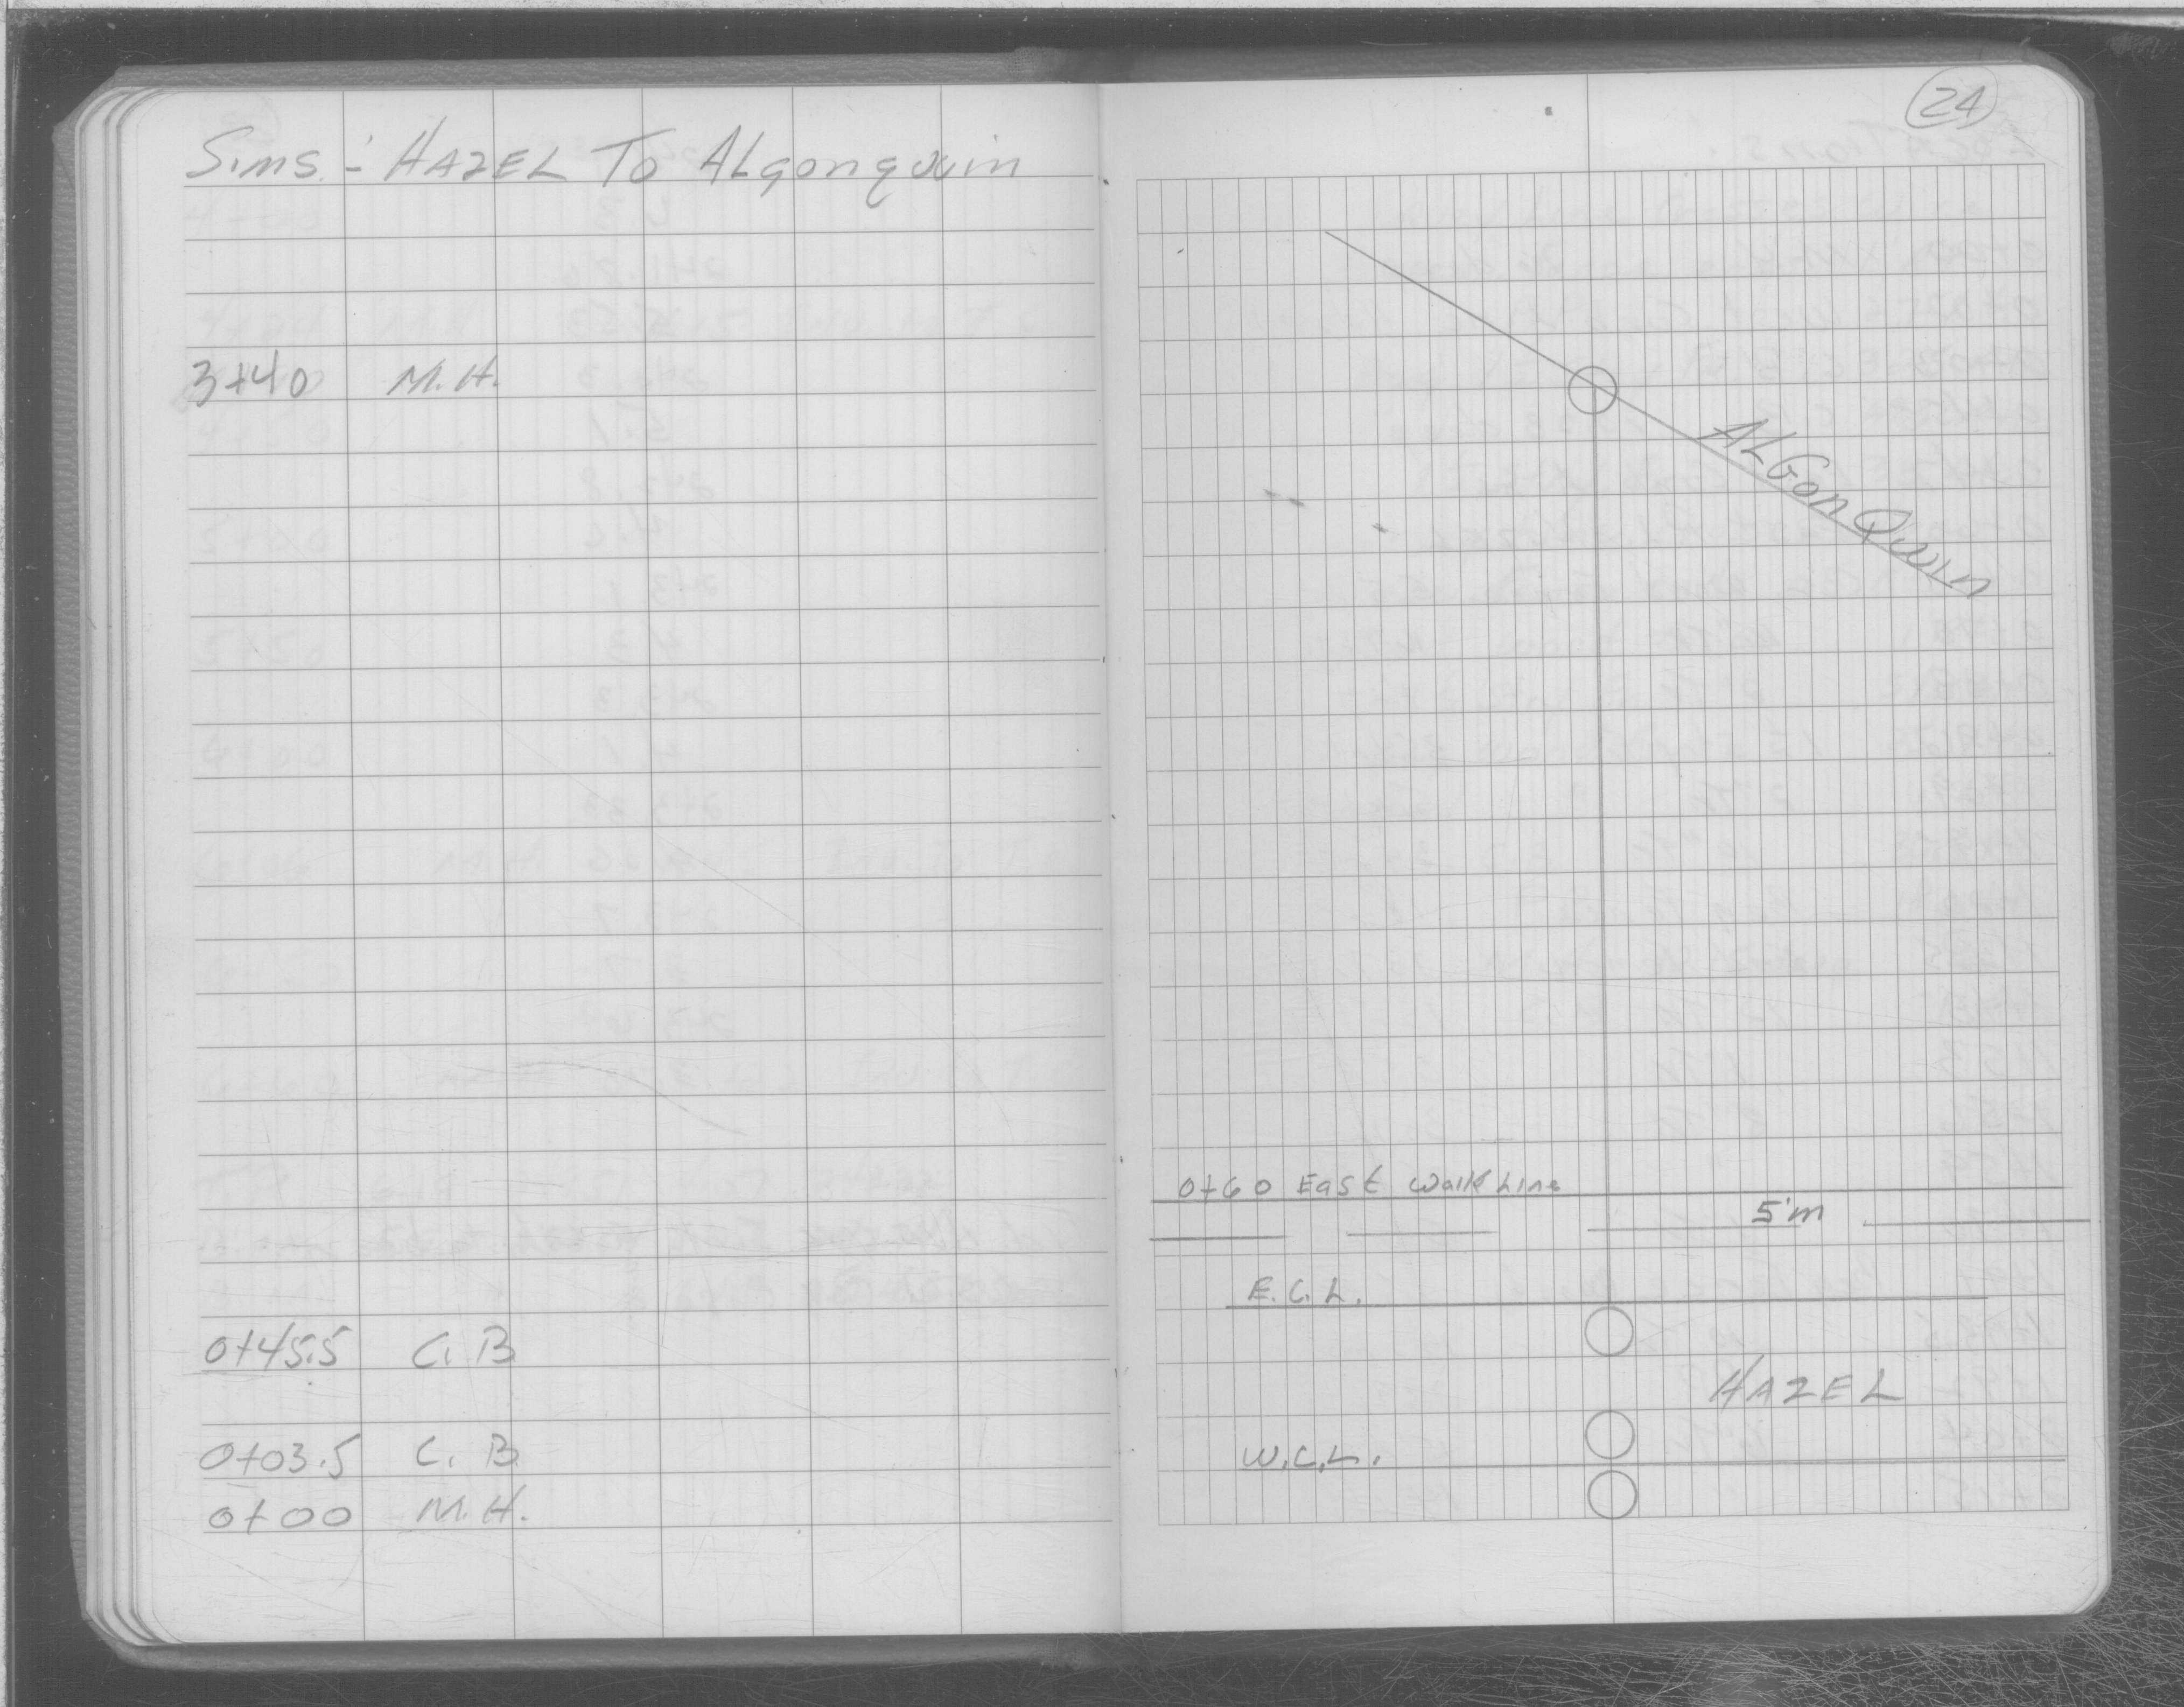 Sims - HAZEL To ALgonquin
3+40 M.H.
0+45.5 C.B
0+03.5 C.B
0+00 M.H.
24
ALGonQuin
0+60 East Walk Line
5'm
E.C.L.
HAZEL
W.C.L.